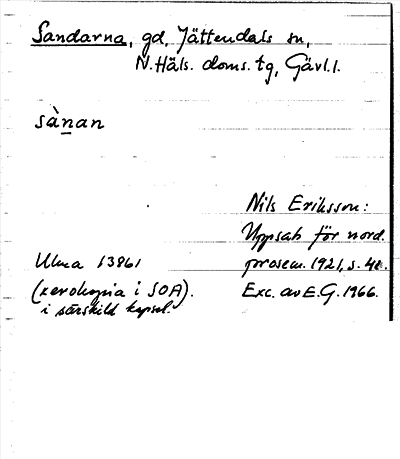 Sandarna, gd, Jättendals sn,
N.Häls. doms. tg, Gävl.l.
sànan
Nils Eriksson:
Uppsats för nord.
prosem. 1921, s. 48.
Ulma 13861
(xerokopia i SOA).
i särskild kapsel.
Exc. av E.G. 1966.